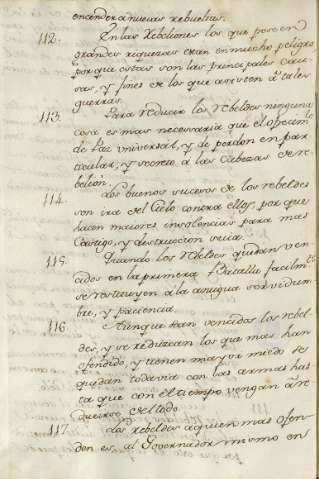 encender a nuevas rebueltas.
112. En las Rebeliones los que poseen
grandes riquezas estan en mucho peligro,
porque estas son las principales cau-
sas, y fines de los que asisten a tales
guerras.
113. Para reducir los rebeldes ninguna
cosa es mas necesaria que el ofrecim.to
de Paz universal, y de perdon en par-
ticular, y secreto a las cabezas de re-
belion.
114. Los buenos sucesos de los rebeldes
son ira del Cielo contra ellos, por que
hacen maiores insolencias para mas
Castigo, y destruccion
115. Quando los rebeldes quedan ven-
cidos en la primera Batalla facilm.te
se restituyen a la antigua servidum-
bre, y paciencia.
116. Aunque han vencidos los rebel-
des, y se reduzcan los que mas han
ofendido, y tienen mayor miedo se
quedan todavia con las armas has-
ta que con el tiempo vengan a re-
del todo
117. Los rebeldes a quien mas ofen-
den es al Governador mismo en